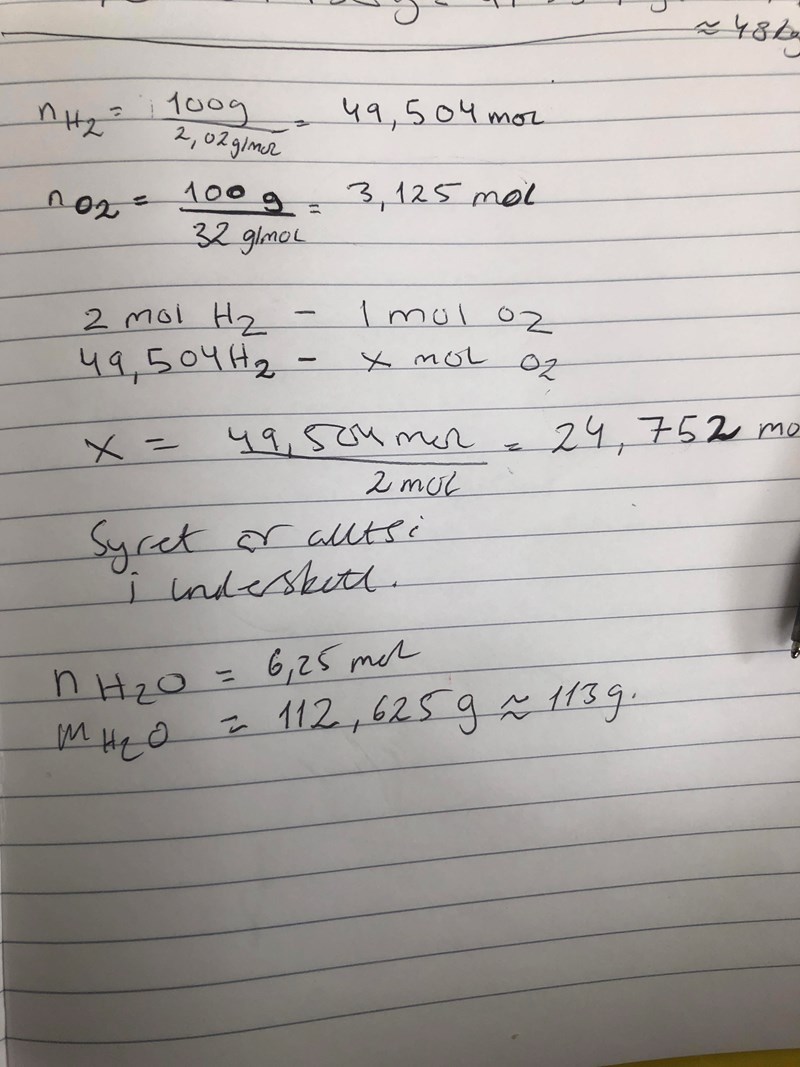 ≈ 48 kg
nH2 = 100g / 2,02 g/mol = 49,504 mol
nO2 = 100 g / 32 g/mol = 3,125 mol
2 mol H2 - 1 mol O2
49,504 H2 - x mol O2
x = 49,504 mol / 2 mol = 24,752 mo
Syret är alltså
i underskott.
nH2O = 6,25 mol
mH2O = 112,625 g ≈ 113 g.